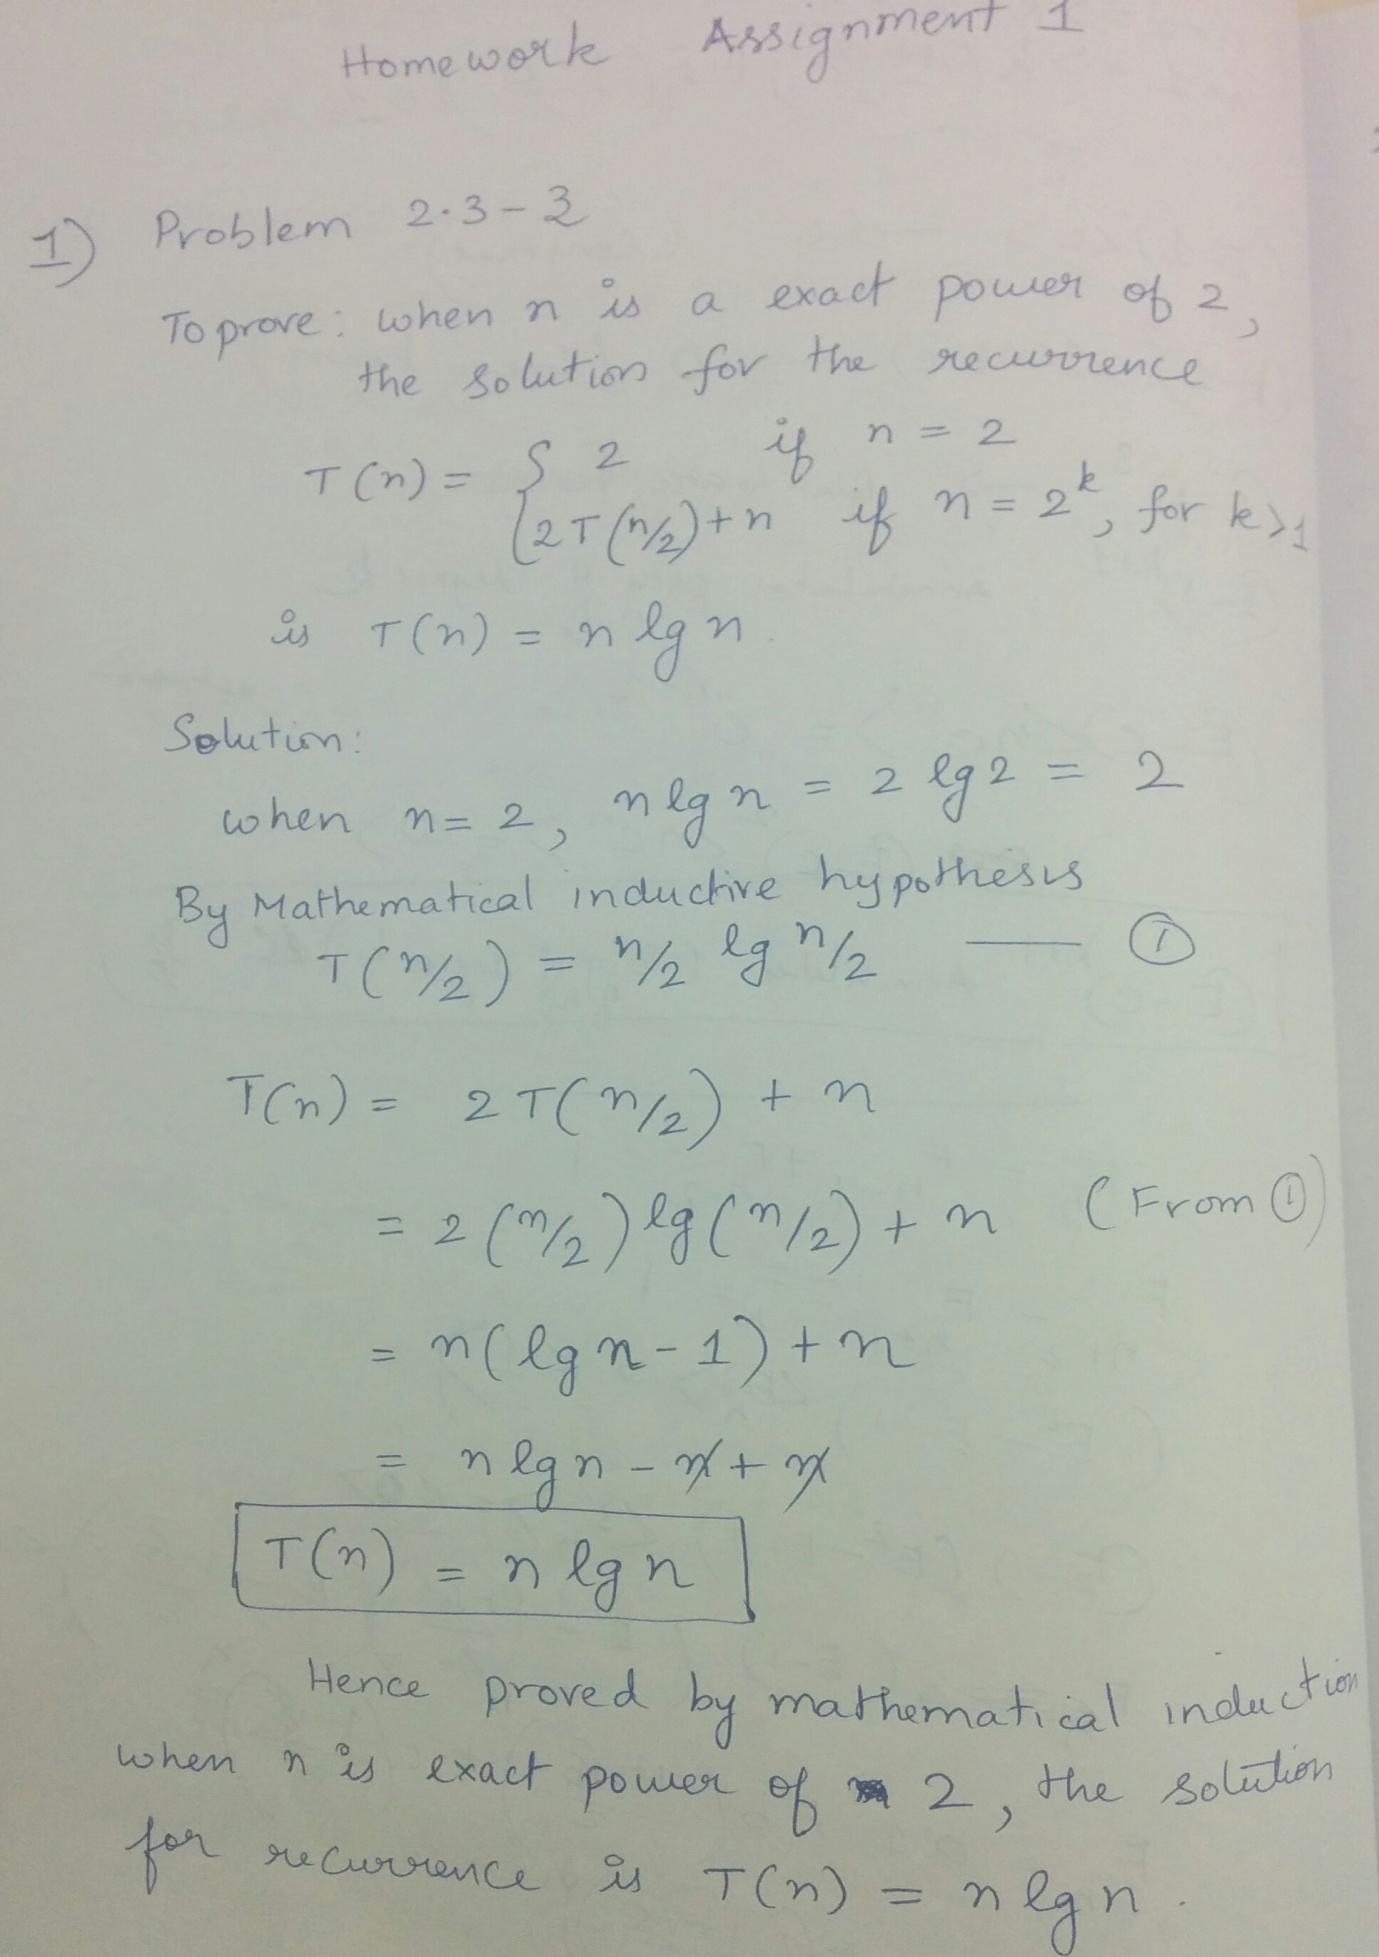 Homework Assignment 1
1) Problem 2.3-3
To prove: when n is a exact power of 2,
the solution for the recurrence
T(n) = { 2 if n = 2
2T(n/2)+n if n = 2^k, for k>1
is T(n) = n lg n.
Solution:
when n= 2, n lg n = 2 lg 2 = 2
By Mathematical inductive hypothesis
T(n/2) = n/2 lg n/2 —— ①
T(n) = 2T(n/2) + n
= 2 (n/2) lg (n/2) + n (From ①)
= n(lg n - 1) + n
= n lg n - n + n
T(n) = n lg n
Hence proved by mathematical induction
when n is exact power of 2, the solution
for recurrence is T(n) = n lg n.